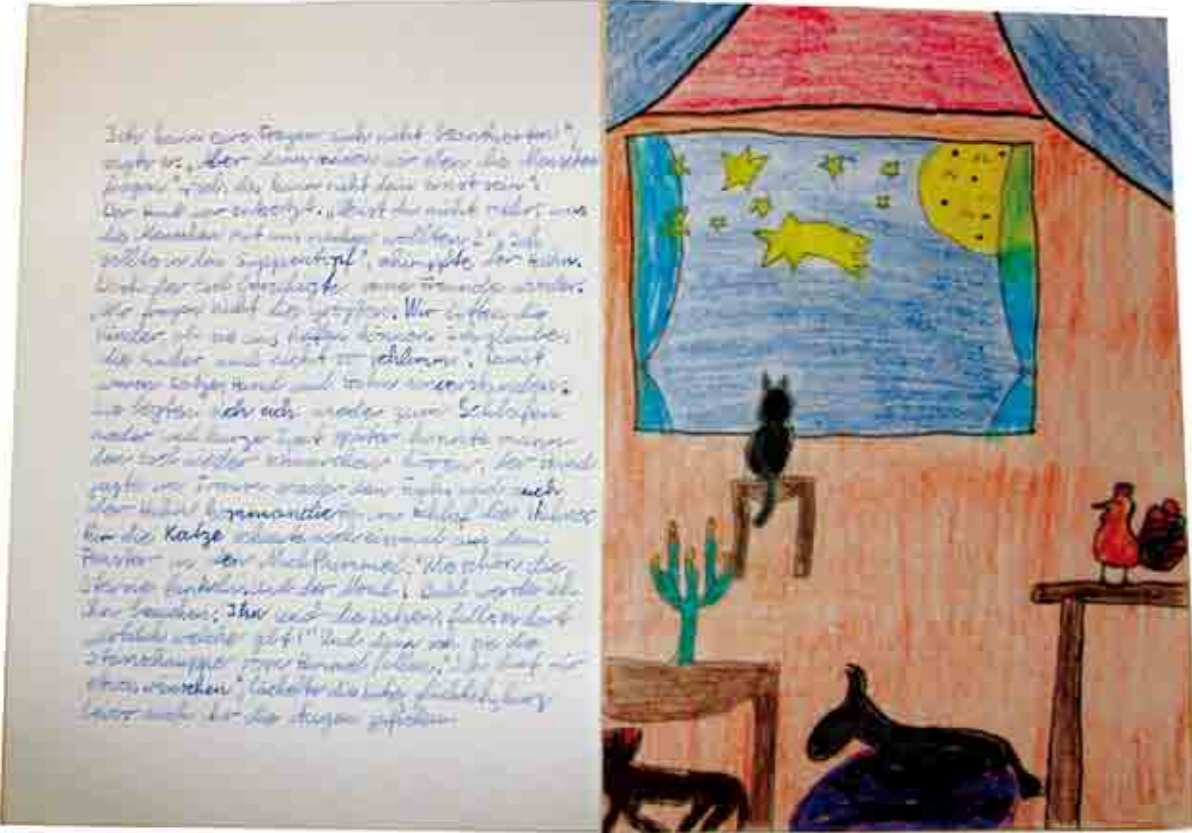 Ich kann eure Fragen auch nicht beantworten!",
sagte er. „Aber dann müssen wir eben die Menschen
fragen" „das kann nicht dein ernst sein".
Der Hund war entsetzt. „Weist du nicht mehr, was
die Menschen mit uns machen wollten?" „Ich
sollte in den Suppentopf", der Hahn.
Doch der Esel seine Freunde wieder.
„Wir fragen nicht die Wir bitten die
Kinder ob sie uns helfen können. Ich glaube,
die Kinder sind nicht so schlimm". Damit
waren Hund und Hahn einverstanden.
Sie legten sich auch wieder zum Schlafen
nieder und kurze Zeit später konnte mann
den Esel wieder schnarchen hören. Der Hund
jagte im Traum wieder den und auch
der Hahn kommandierte im Schlaf die Hühner
Nur die Katze schaute noch einmal aus dem
Fenster in den Nachthimmel. "Wie schön die
Sterne funkeln und der Mond. Bald werde ich
ihn besuchen. Ihn und die
solch weiche gibt!" Und dann sah sie die
Sternschnuppe vom Himmel fallen. "Ich darf mir
etwas wünschen", lächelte die Katze glücklich, kurz
bevor auch ihr die Augen zufielen.